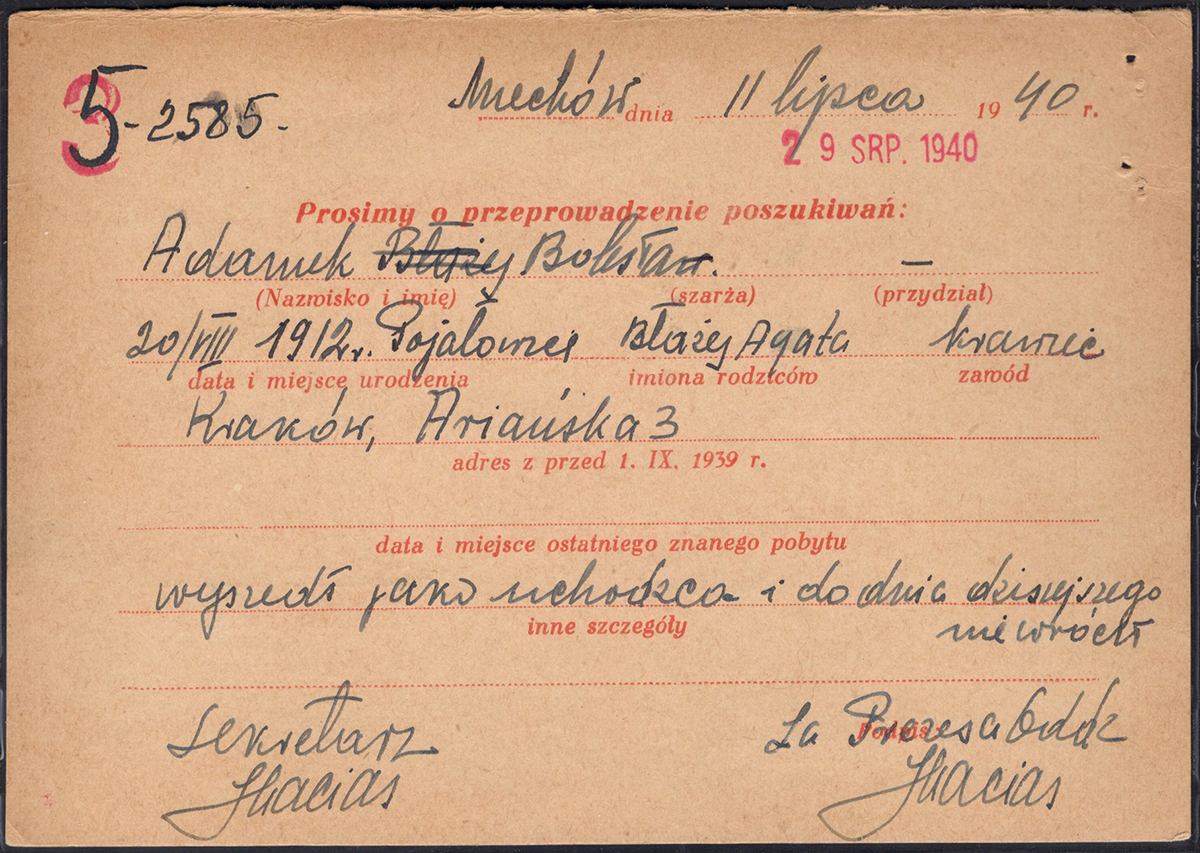 3
5-2585.
Miechów dnia 11 lipca 1940 r.
29 SRP. 1940
Prosimy o przeprowadzenie poszukiwań:
Adamek Błażej Bolesław. –
(Nazwisko i imię) (szarża) (przydział)
20/VIII 1912r. Pojałowice Błażej Agata krawiec
data i miejsce urodzenia imiona rodziców zawód
Kraków, Ariańska 3
adres z przed 1. IX. 1939 r.
data i miejsce ostatniego znanego pobytu
wyszedł jako uchodźca i do dnia dzisiejszego
inne szczegóły
nie wrócił
Sekretarz Za Prezesa Oddz
Podpis